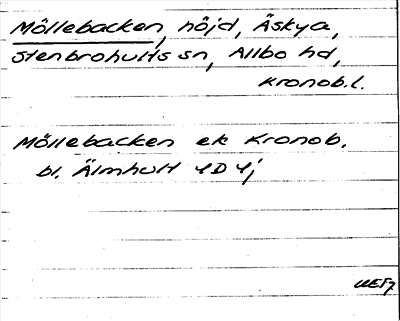 Möllebacken, höjd, Äskya,
Stenbrohults sn, Allbo hd,
Kronob.l.
Möllebacken ek Kronob.
bl. Älmhult 4D 4j